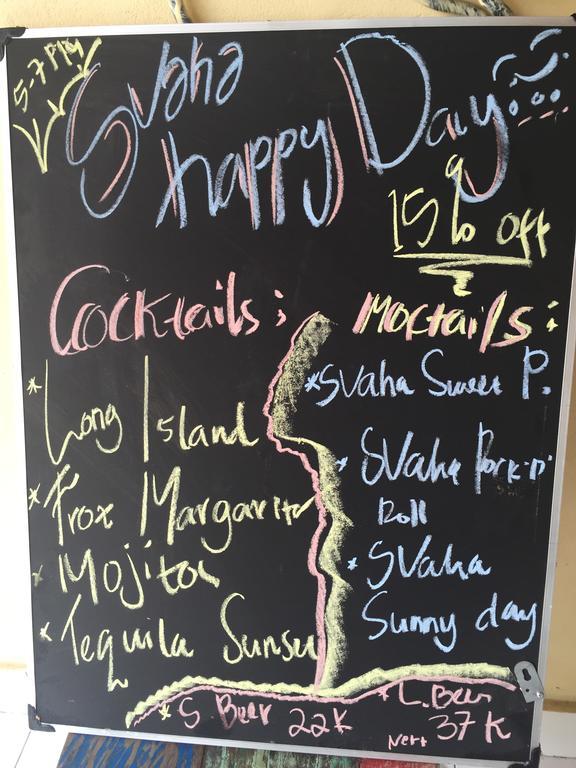 5-7 PM
Svaha
happy Day
15% off
Cocktails:
* Long Island
* Froz Margarita
* Mojitos
* Tequila
Moctails:
* Svaha Sweet P.
* Svaha Rock-n'
Roll
* Svaha
Sunny day
* S. Beer 22K
* L. Beer
Nett 37K